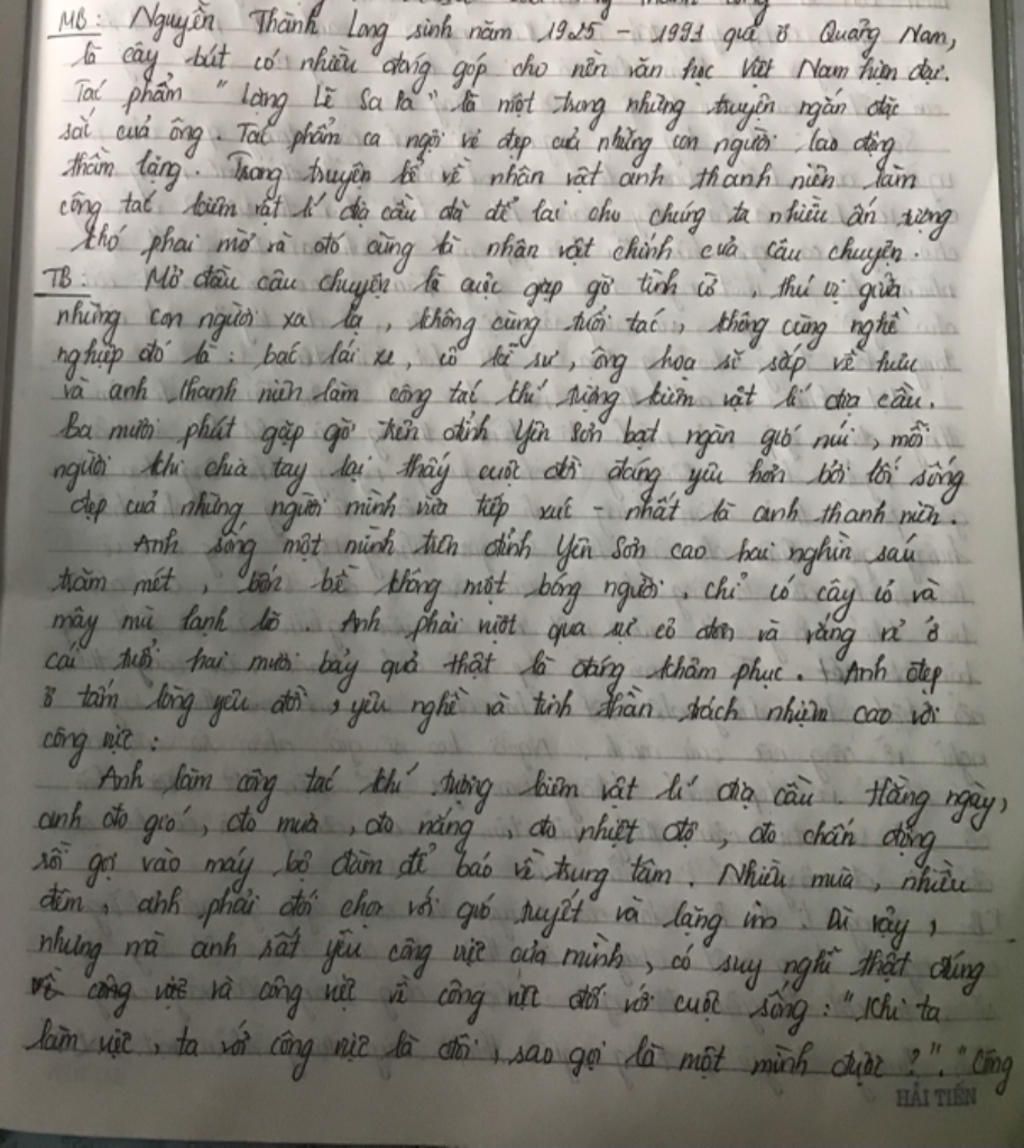 MB: Nguyễn Thành Long sinh năm 1925 - 1991 quê ở Quảng Nam,
là cây bút có nhiều đóng góp cho nền văn học Việt Nam hiện đại.
Tác phẩm "Lặng Lẽ Sa Pa" là một trong những truyện ngắn đặc
sắc của ông. Tác phẩm ca ngợi vẻ đẹp của những con người lao động
thầm lặng. Trong truyện kể về nhân vật anh thanh niên làm
công tác kiêm vật lí địa cầu đã để lại cho chúng ta nhiều ấn tượng
khó phai mờ và đó cũng là nhân vật chính của câu chuyện.
TB: Mở đầu câu chuyện là cuộc gặp gỡ tình cờ, thú vị giữa
những con người xa lạ, không cùng tuổi tác, không cùng nghề
nghiệp đó là: bác lái xe, cô kĩ sư, ông họa sĩ sắp về hưu
và anh thanh niên làm công tác khí tượng kiêm vật lí địa cầu.
Ba mươi phút gặp gỡ trên đỉnh Yên Sơn bạt ngàn gió núi, mỗi
người khi chia tay lại thấy cuộc đời đáng yêu hơn bởi lối sống
đẹp của những người mình vừa tiếp xúc - nhất là anh thanh niên.
Anh sống một mình trên đỉnh Yên Sơn cao hai nghìn sáu
trăm mét, bốn bề không một bóng người, chỉ có cây cỏ và
mây mù lạnh lẽo. Anh phải vượt qua sự cô đơn và vắng vẻ ở
cái tuổi hai mươi bảy quả thật là đáng khâm phục. Anh đẹp
ở tấm lòng yêu đời, yêu nghề và tinh thần trách nhiệm cao với
công việc:
Anh làm công tác khí tượng kiêm vật lí địa cầu. Hằng ngày,
anh đo gió, đo mưa, đo nắng, đo nhiệt độ, đo chấn động
rồi gọi vào máy bộ đàm để báo về trung tâm. Nhiều mưa, nhiều
đêm, anh phải đối chọi với gió tuyết và lặng im. Dù vậy,
nhưng mà anh rất yêu công việc của mình, có suy nghĩ thật đúng
về công việc và công việc về công việc đối với cuộc sống: "Khi ta
làm việc, ta với công việc là đôi, sao gọi là một mình được?". "Công
HẢI TIẾN